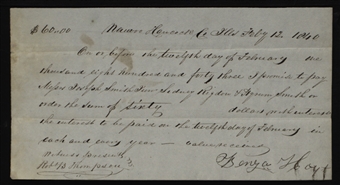 $60.00 Nauvoo Hancock Co Ills Feby 12. 1840
On or before the twelfth day of February one
thousand Eight hundred and forty three I promise to pay
Joseph Smith Sidney Rigdon & Hyrum Smith or
order the sum of sixty dollars with interest
the interest to be paid on the twelfth day of February in
each and every year — value received
Robt B Thompson Benja